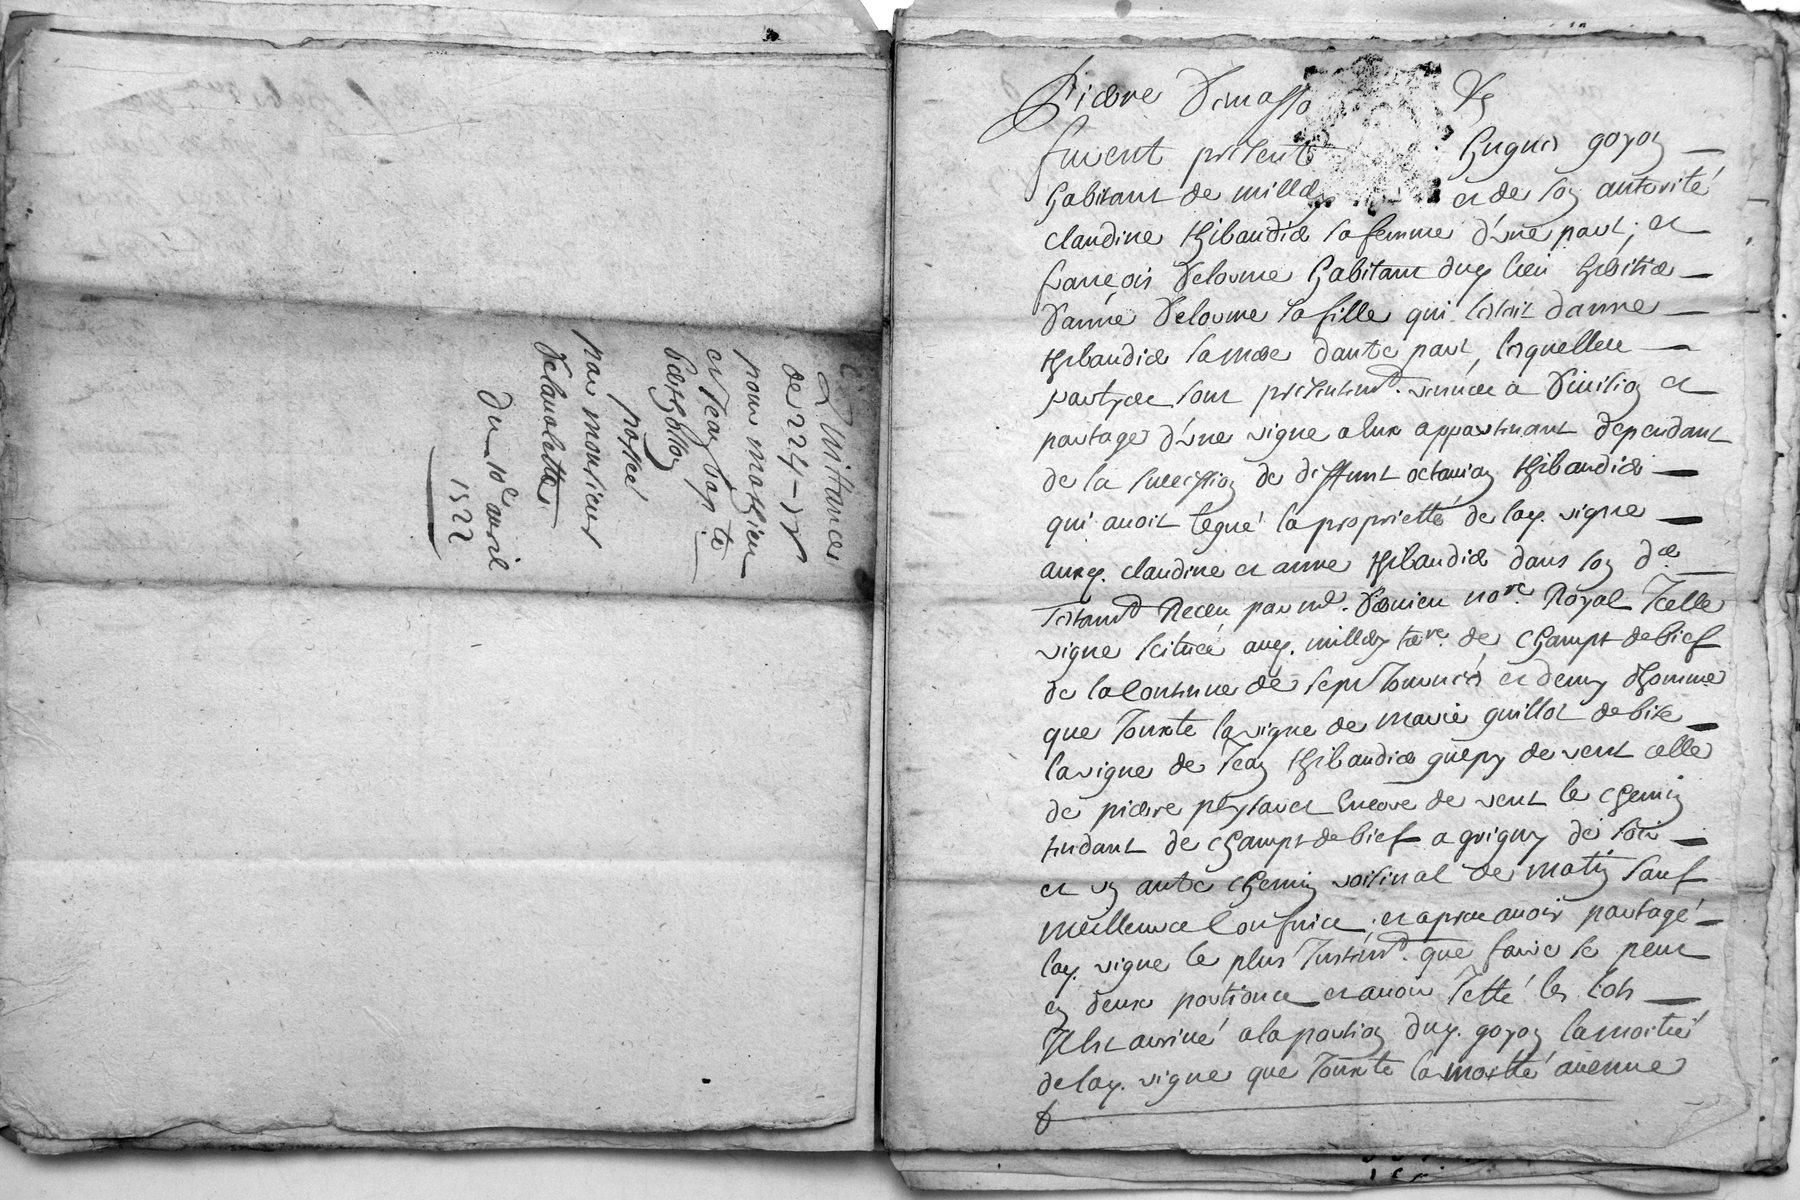 Quittance
de 224 - 
pour mathieu
et Jean bap.te
berthillon
passée
par monsieur
Delavolette
Du 10e avril
1522
furent présents hugues goyon
habitant de milly et de son autorité
claudine thibaudier sa femme d'une part, et
françois Delorme habitant dud. lieu héritier
d'anne Delorme sa fille qui l'estoit d'anne
thibaudier sa mère d'autre part, lesquelles
partyes sont présentem.t venues a Division et
partage d'une vigne a eux appartenant dependant
de la succession de deffunt octavien thibaudier
qui avoit legué la proprietté de lad. vigne
auxd. claudine et anne thibaudier dans son d.er
testam.t Receu par me. Dernieu no.re Royal Icelle
vigne scituée aud. milly ter.re de champt de bief
de la Contenue de sept Journées et demy d'homme
que Jouxte la vigne de marie guillot de bise
la vigne de Jean thibaudier guepy de vent celle
de pierre peytavet Encore de vent le chemin
tendant de champt de bief a grigny de soir
et un autre chemin voisinal de matin sauf
meilleures Confrines, et apres avoir partagé
lad. vigne le plus Justem.t que faire se peut
en deux portions et avoir Jetté les lots
Il est arrivé a la portion dud. goyon la moitié
de lad. vigne que Jouxte la moitié avenue